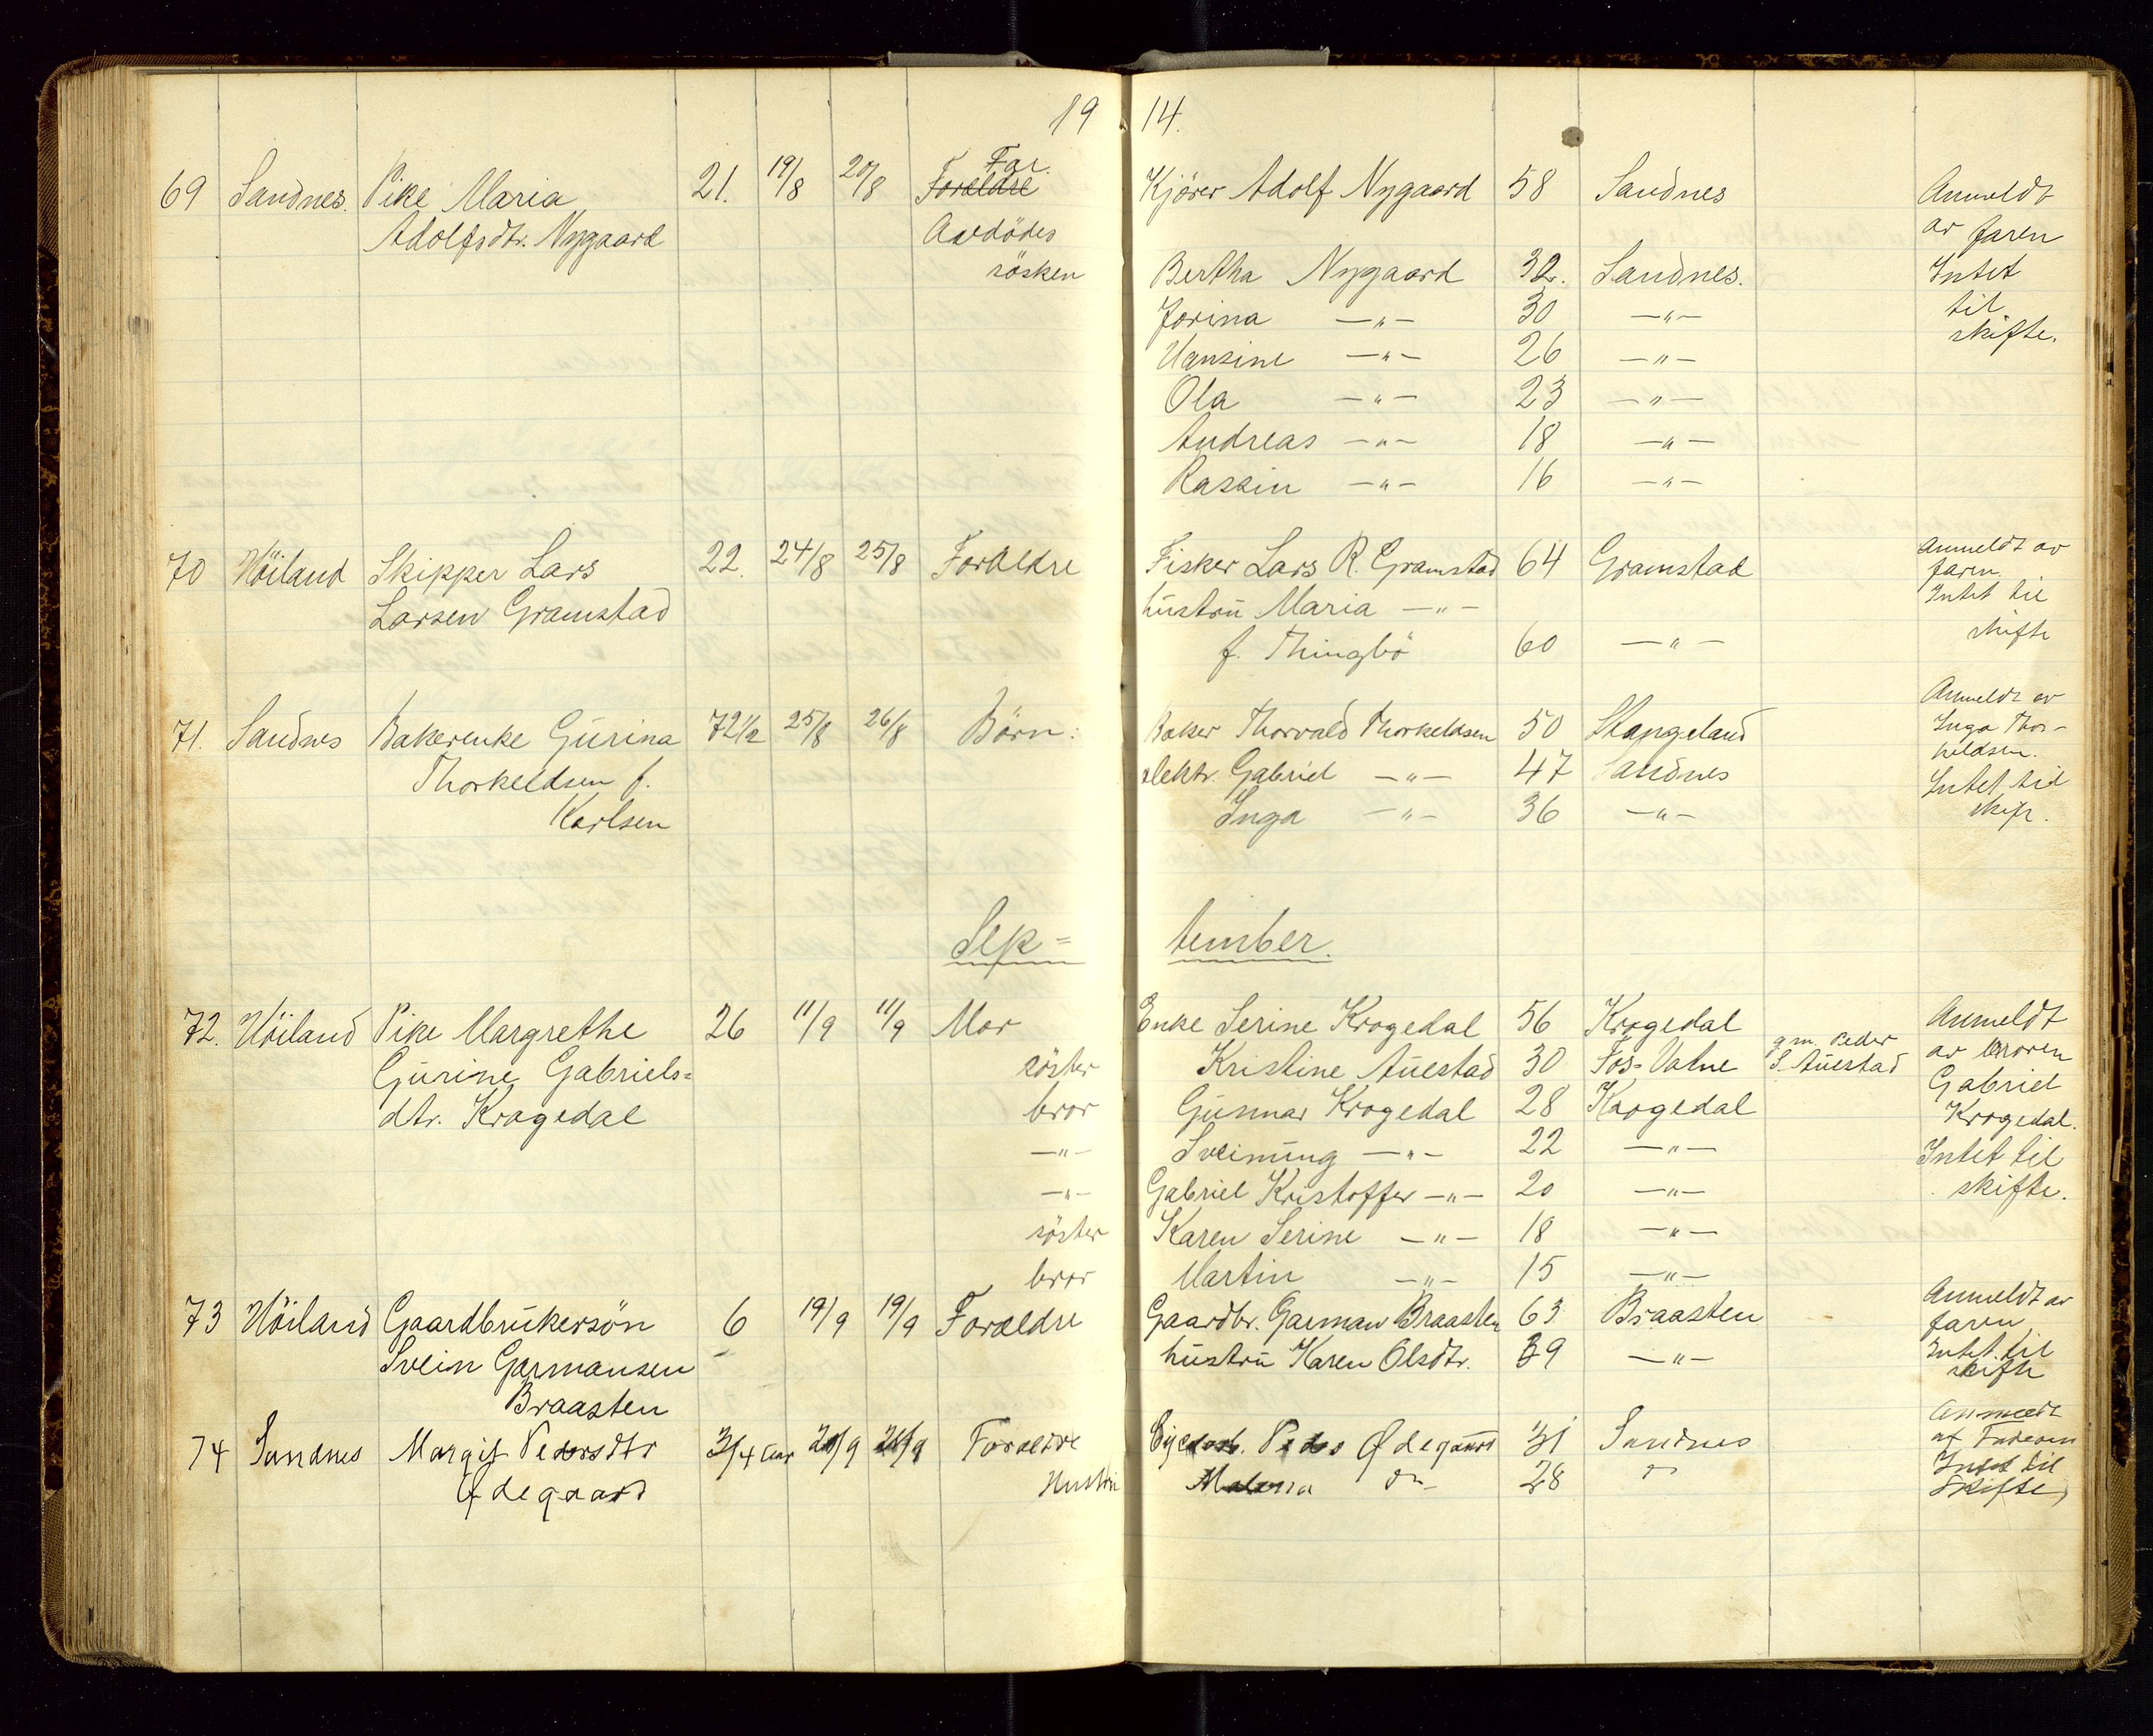 19 14.
69 Sandnes. Pike Maria 21. 19/8 20/8 Far. Kjörer Adolf Nygaard 58 Sandnes Anmeldt
Foreldre
Adolfsdtr. Nygaard Avdödes av faren
søsken Bertha Nygaard 32. Sandnes. Intet
Jorina —"— 30 —"— til
Hansine —"— 26 —"— skifte.
Ola —"— 23 —"—
Andreas —"— 18 —"—
Rassin —"— 16 —"—
70 Höiland Skipper Lars 22. 24/8 25/8 Foreldre Fisker Lars R. Gramstad 64 Gramstad Anmeldt av
faren.
Larsen Gramstad hustru Maria —"— Intet til
f. Thingbö 60 —"— skifte
71. Sandnes Bakerenke Gurina 72 1/2 25/8 26/8 Börn: Baker Thorvald Thorkeldsen 50 Stangeland Anmeldt av
Inga Thor-
keldsen.
Thorkeldsen f. elektr. Gabriel —"— 47 Sandnes Intet til
Karlsen Inga —"— 36 —"— skift.
Sep= tember.
72. Höiland Pike Margrethe 26 11/9 11/9 Mor Enke Serine Krogedal 56 Krogedal Anmeldt
Gurine Gabriels= söster Kristine Auestad 30 Fos-Vatne g.m. Peder S. Auestad av broren
dtr. Krogedal bror Gunnar Krogedal 28 Krogedal Gabriel
Krogedal.
—"— Sveinung —"— 22 —"— Intet til
—"— Gabriel Kristoffer —"— 20 —"— skifte.
söster Karen Serine —"— 18 —"—
bror Martin —"— 15 —"—
73 Höiland Gaardbrukersön 6 19/9 19/9 Foraeldre Gaardbr. Garman Braasten 63 Braasten Anmeldt av
faren
Svein Garmansen hustru Karen Olsdtr. 39 —"— Intet til
Braasten skifte
74 Sandnes Margit Pedersdtr 3/4 aar Foraeldre Peder Ødegaard 31 Sandnes Anmeldt
af Faderen
Ødegaard Hustru 28 " Intet til
Skifte